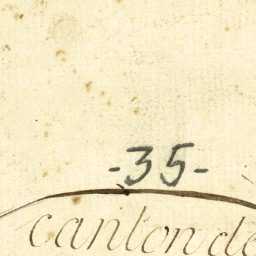 -35-
canton de